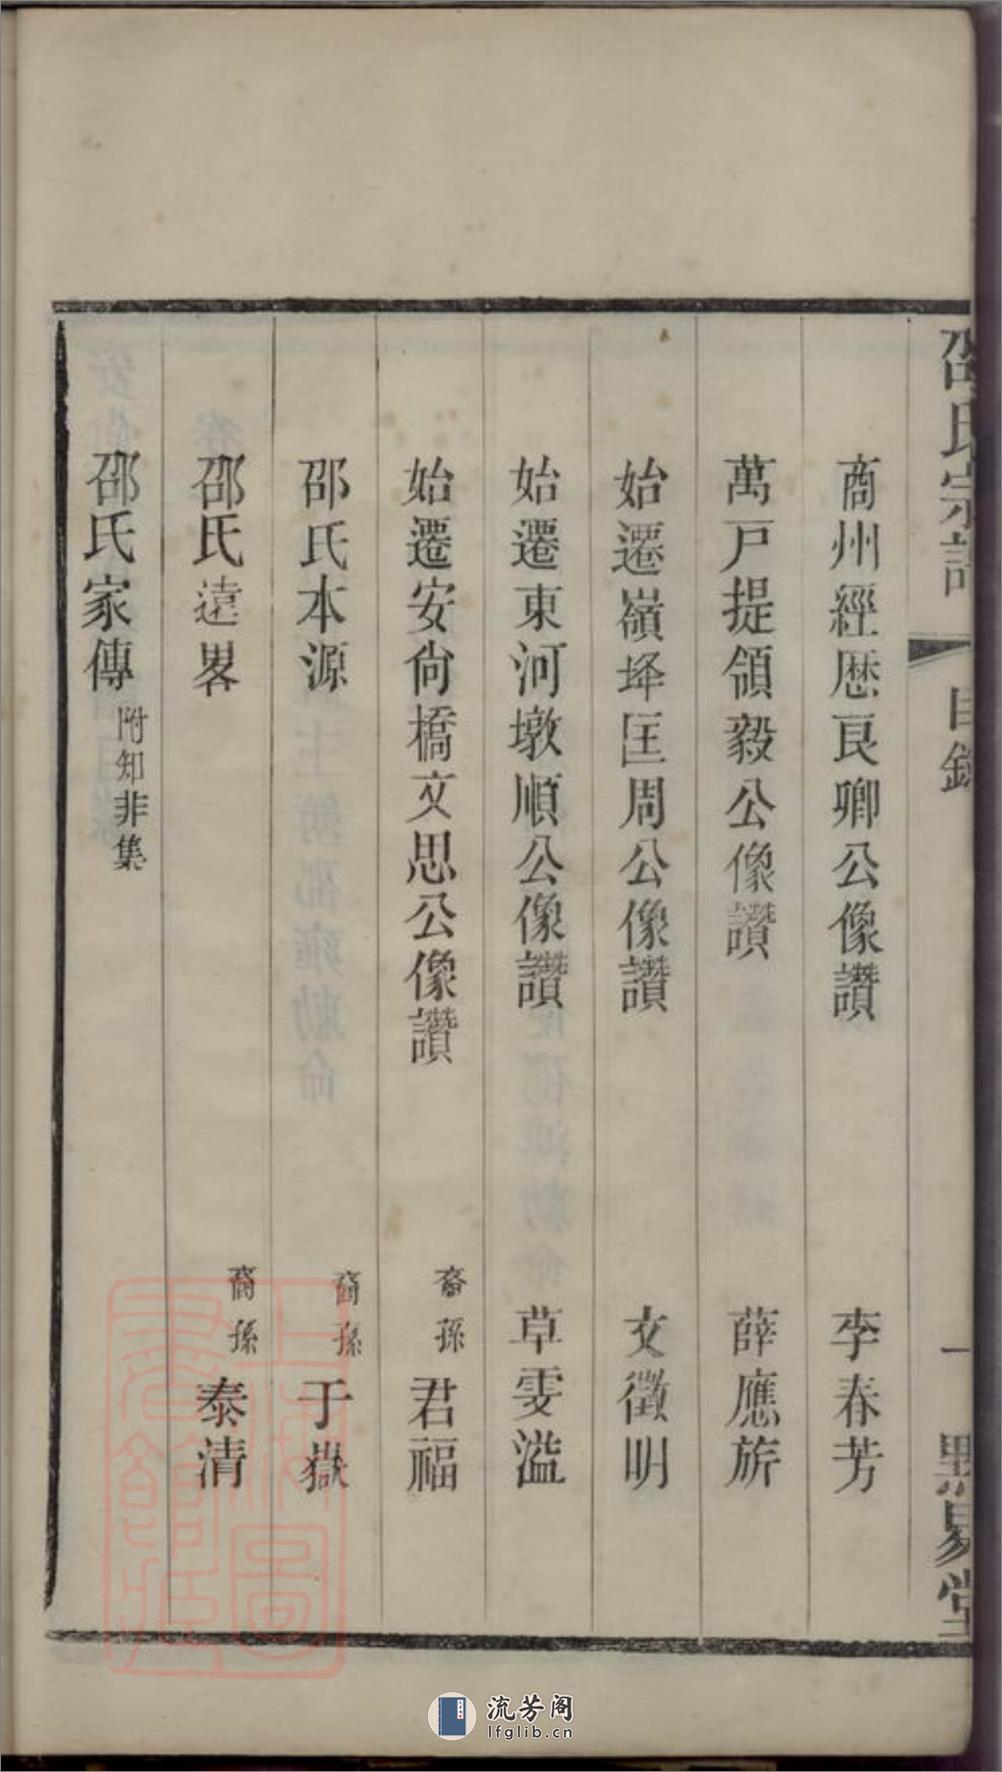 邵氏宗譜 目錄 一 點易堂
商州經歷良卿公像讚 李春芳
萬戶提領毅公像讚 薛應旂
始遷嶺垶匡周公像讚 文徵明
始遷東河墩順公像讚 草雯溢
始遷安尙橋文思公像讚 裔孫 君福
邵氏本源 裔孫 于嶽
邵氏遠畧 裔孫 泰清
邵氏家傳 附知非集
上海圖書館藏
流芳阁
lfglib.cn